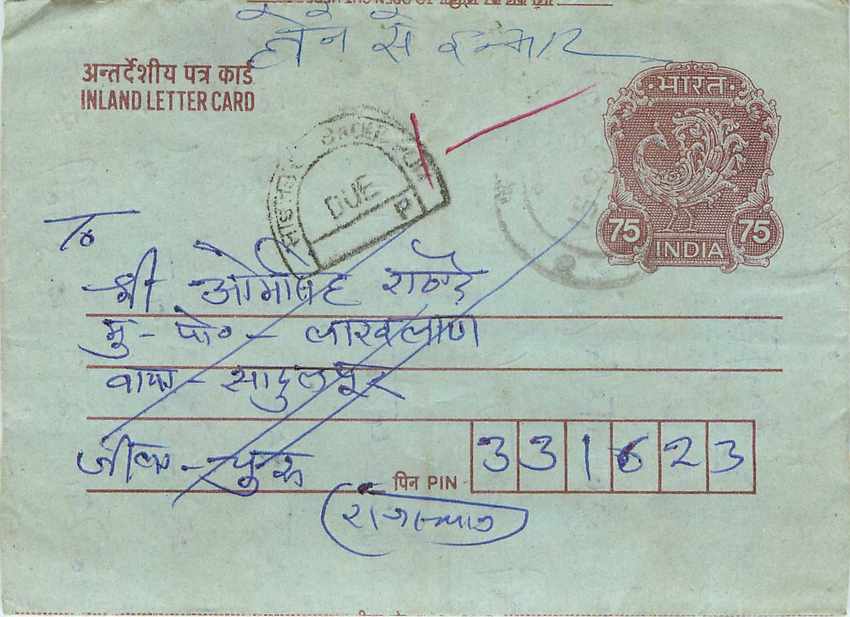 लेने से इन्कार
अन्तर्देशीय पत्र कार्ड
INLAND LETTER CARD
भारत
75 INDIA 75
DUE
P
To
श्री ओमसिंह राठौड़
मु - पो० - लाखलाण
वाया - सादुलपुर
जीला - चुरू
पिन PIN 331623
(राजस्थान)